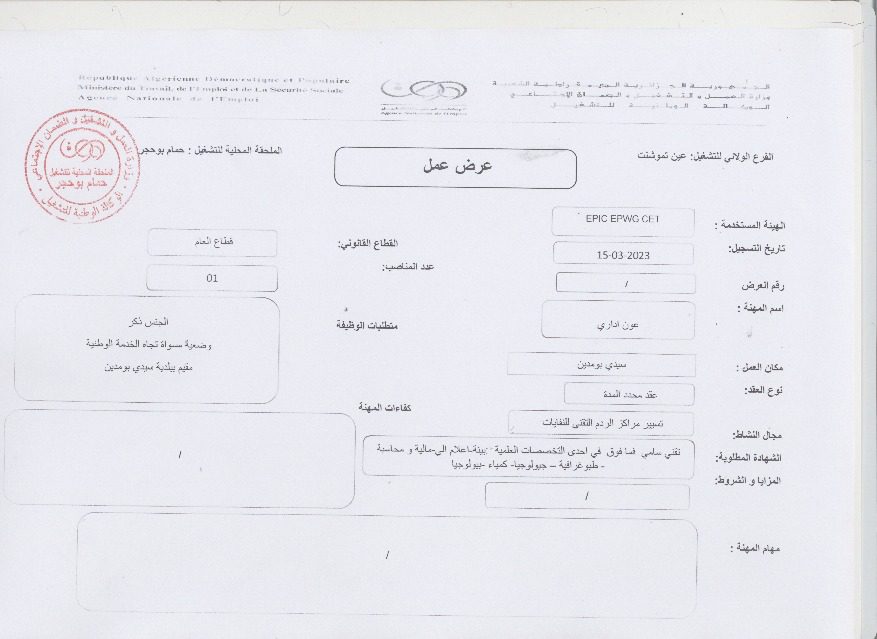 République Algérienne Démocratique et Populaire
Ministère du Travail, de l'Emploi et de La Sécurité Sociale
Agence Nationale de l'Emploi
الجمهورية الجزائرية الديمقراطية الشعبية
وزارة العمل والتشغيل والضمان الاجتماعي
الوكالة الوطنية للتشغيل
الوكالة الوطنية للتشغيل
Agence Nationale de l'Emploi
وزارة العمل و التشغيل و الضمان الاجتماعي
الملحقة المحلية للتشغيل
حمام بوحجر
الوكالة الوطنية للتشغيل
الفرع الولائي للتشغيل: عين تموشنت
الملحقة المحلية للتشغيل : حمام بوحجر
عرض عمل
الهيئة المستخدمة :
EPIC EPWG CET
تاريخ التسجيل:
15-03-2023
القطاع القانوني:
قطاع العام
عدد المناصب:
01
رقم العرض
/
اسم المهنة :
عون اداري
متطلبات الوظيفة
الجنس ذكر
وضعية مسواة تجاه الخدمة الوطنية
مقيم ببلدية سيدي بومدين
مكان العمل :
سيدي بومدين
نوع العقد:
عقد محدد المدة
كفاءات المهنة
/
مجال النشاط:
تسيير مراكز الردم التقني للنفايات
الشهادة المطلوبة:
تقني سامي فما فوق في احدى التخصصات العلمية :بيئة-اعلام الي-مالية و محاسبة
- طبوغرافية – جيولوجيا- كمياء -بيولوجيا
المزايا و الشروط:
/
مهام المهنة :
/